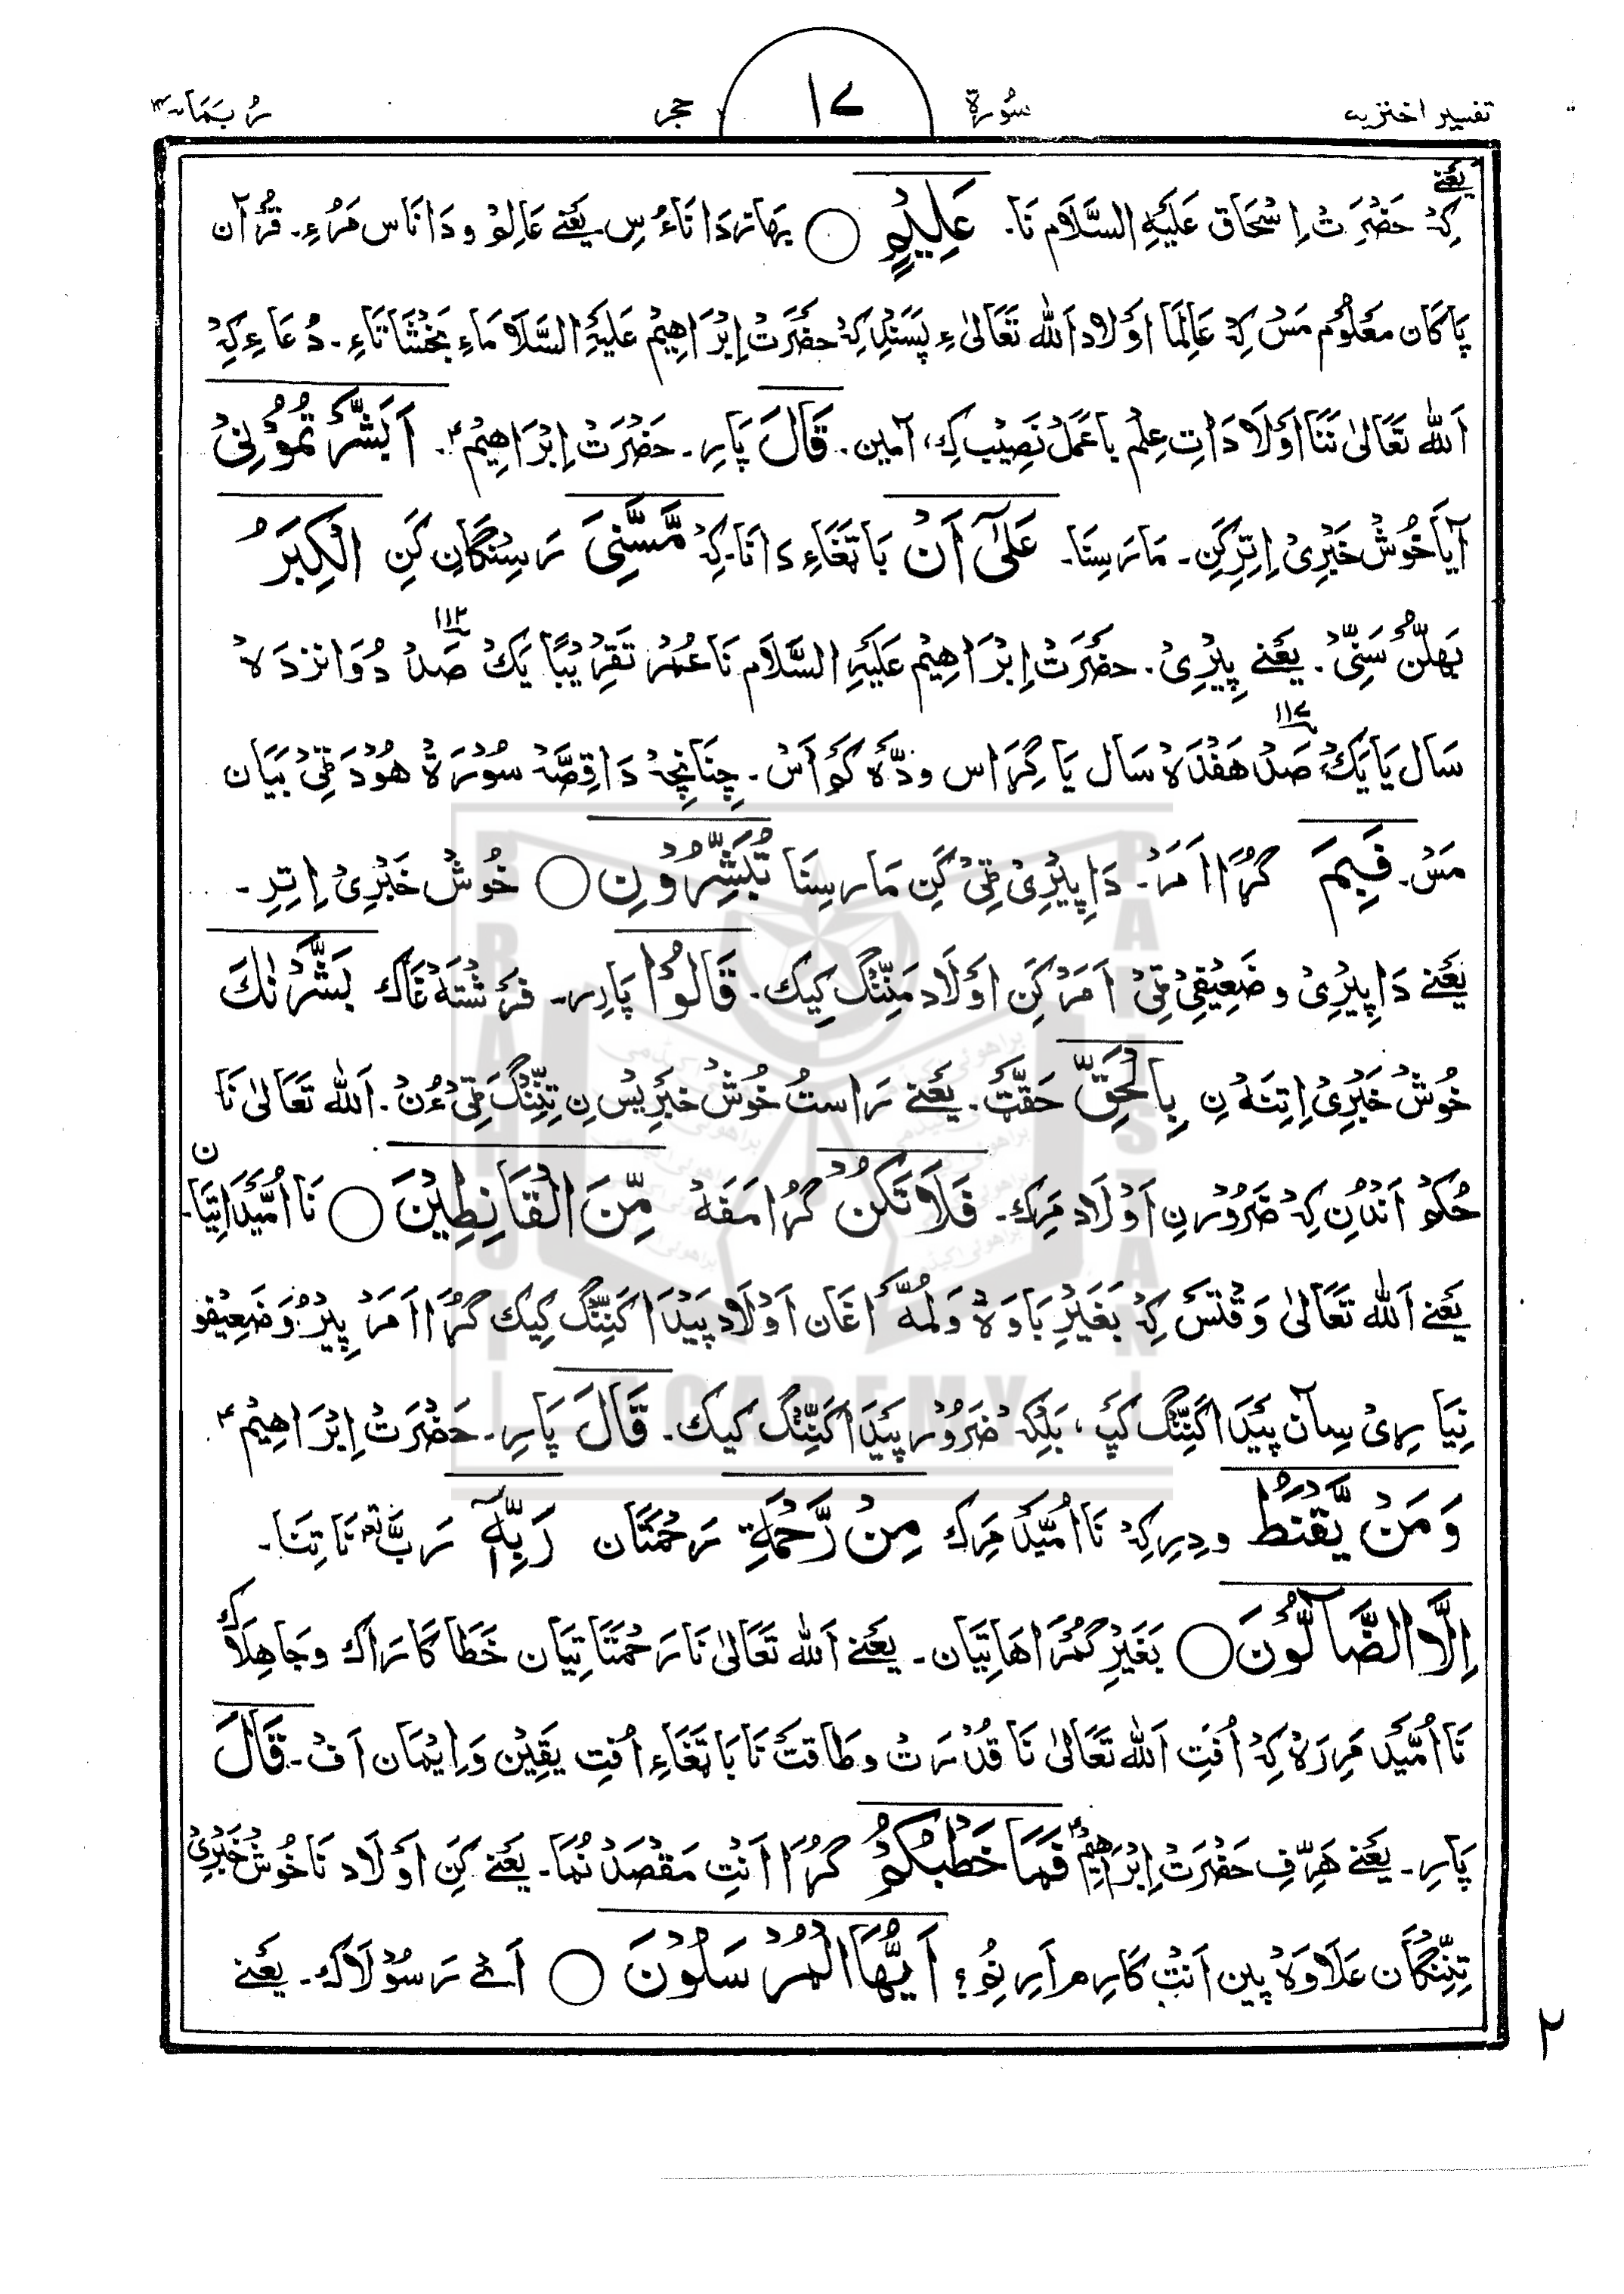 تفسیر اختریه سُورة ١٧ حجر رُبَمَا ١٤
یَعنے
کِہْ حَضْرَتْ اِسْحَاق عَلَیْہِ السَّلَام نَا۔ عَلِیْمٍ ○ بھاز دَانَاءُ سِ۔ یعنے عَالِمْ و دَانَاس مَرُءِ۔ قُرْآن
پَاکَان مَعْلُوْم مَسْ کِہْ عَالِمَا اَوْلَاد اَللہ تَعَالیٰ ءِ پَسَنْد کِہْ حَضْرَتْ اِبْرَاهِیْم عَلَیْہِ السَّلَام اءِ بَخْشَاتَاءِ۔ دُعَاءِ کِہْ
اَللہ تَعَالیٰ نَنَا اَوْلَادَاتِ عِلْم بَاعَمَلْ نَصِیْب کِ، آمین۔ قَالَ پَارِ۔ حَضْرَتْ اِبْرَاهِیْمْ۴۔ اَبَشَّرْتُمُوْنِیْ
آیَا خُوْش خَبْرِیْ اِتِرِ کَنِ۔ مَارَسِنَا۔ عَلٰٓی اَنْ بَاتَغَاءِ دَانَا۔ کِہْ مَّسَّنِیَ رَسِنْگَان کَنِ الْکِبَرُ
پھَلُنْ سَنِّیْ۔ یَعنے پِیْرِیْ۔ حَضْرَتْ اِبْرَاهِیْم عَلَیْہِ السَّلَام نَا عُمْر تَقْرِیْبًا یَکْ صَدْ دُوَانْزدَہْ ١١٢
سَال یَا یَکْ صَدْ هَفْدَہْ ١١٧ سَال یَا گِرَاس ودّہْ کَم اَسْ۔ چِنَانچِہْ دَا قِصَّہْ سُوْرَۃ هُوْد ٹِیْ بَیَان
مَسْ۔ فَبِمَ گُڑَا اَمَرْ۔ دَا پِیْرِیْ ٹِیْ کَنِ مَارسِنَا تُبَشِّرُوْنِ ○ خُوْش خَبْرِیْ اِتِرِ۔
یَعنے دَا پِیْرِیْ و ضَعِیْفِیْ ٹِیْ اَمَرْ کَنِ اَوْلَاد مَنِّنْگ کِیْک۔ قَالُوْا پَارِر۔ فَرِشْتَہْ غَاک بَشَّرْنٰکَ
خُوْش خَبْرِیْ اِتِنَہْ نِ بِالْحَقِّ حَقَّتْ۔ یَعنے رَاسْت خُوْش خَبْرِیْس نِ تِنِّنْگ ٹِیْ ءُنْ۔ اَللہ تَعَالیٰ نَا
حُکْم اَنْدُن کِہْ ضَرُوْر نِ اَوْلَاد مَرِک۔ فَلَا تَکُنْ گُڑَا مَفَہْ مِّنَ الْقَانِطِیْنَ ○ نَا اُمِّیْدَاتِیَان۔
یَعنے اَللہ تَعَالیٰ وَقْتَسْ کِہْ بَغَیْرِ بَاوَہْ و لُمَّہْ غَان اَوْلَاد پَیْدَا کَنِّنْگ کِیْک گُڑَا اَمَرْ پِیْر و ضَعِیْفو
نِیَارِیْ سِآن پَیْدَا کَنِّنْگ کَپِ، بَلْکِہْ ضَرُوْر پَیْدَا کَنِّنْگ کِیْک۔ قَالَ پَارِ۔ حَضْرَتْ اِبْرَاهِیْمْ۴
وَمَنْ یَّقْنَطُ و دِرِ کِہْ نَا اُمِّیْد مَرِک مِنْ رَّحْمَۃِ رَحْمَتَان رَبِّہٖٓ رَبَّ نَا تِنَا۔
اِلَّا الضَّآلُّوْنَ ○ بَغَیْرِ گُمْرَاهَاتِیَان۔ یَعنے اَللہ تَعَالیٰ نَا رَحْمَتَاتِیَان خَطَاکَارَاک و جَاهِلَاک
نَا اُمِّیْد مَرِرَہْ کِہْ اُفْتِ اَللہ تَعَالیٰ نَا قُدْرَتْ و طَاقَتْ نَا بَاتَغَاءِ اُفْتِ یَقِیْن و اِیْمَان اَفْ۔ قَالَ
پَارِ۔ یَعنے هَرِفِ حَضْرَتْ اِبْرَاهِیْمْ۴ فَمَا خَطْبُکُمْ گُڑَا اَنْتِ مَقْصَدْ نُمَا۔ یَعنے کَنِ اَوْلَاد نَا خُوْش خَبْرِیْ
تِنِّنْگَان عَلَاوَہْ پین اَنْتِ کَارِم اَرِ نُمِ؟ اَیُّهَا الْمُرْسَلُوْنَ ○ اَے رَسُوْلَاک۔ یَعنے
٢
BRAHUI ACADEMY PAKISTAN